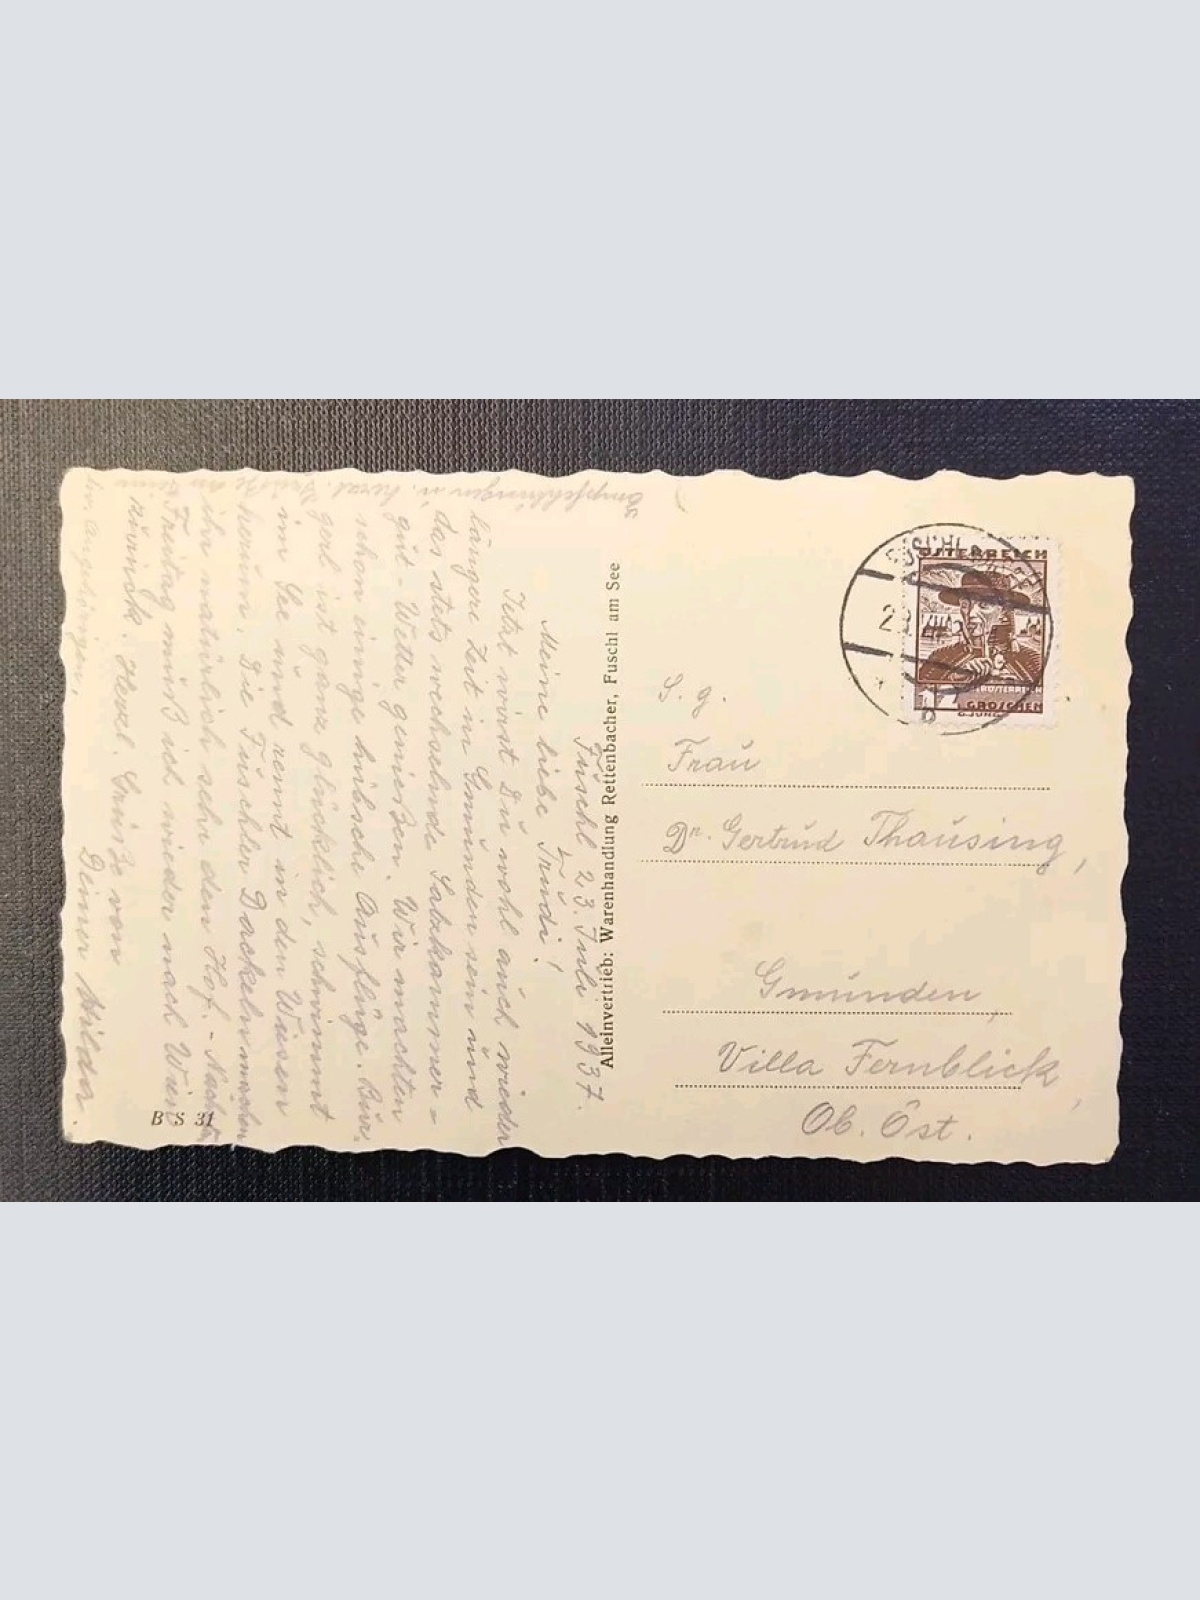 Fuschl 23. Juli 1937.
Meine liebe Trudi!
Jetzt wirst Du wohl auch wieder
längere Zeit in Gmunden sein und
das stets wechselnde Salzkammer-
gut-Wetter genießen. Wir machten
schon einige hübsche Ausflüge. Bur-
gerl ist ganz glücklich, schwimmt
im See und rennt in den Wiesen
herum. Die Fuschler Dackeln machen
ihr natürlich sehr den Hof. - Nächst.
Freitag muß ich wieder nach Wien
zurück. Herzl. Grüße von
Deiner Hilda.
Empfehlungen u. herzl. Grüße an Deine
lb. Angehörigen.
B S 31
Alleinvertrieb: Warenhandlung Rettenbacher, Fuschl am See
FUSCHL
ÖSTERREICH
OBERÖSTERREICH
12 GROSCHEN
b
S. g.
Frau
Dr. Gertrud Thausing,
Gmunden,
Villa Fernblick,
Ob. Öst.